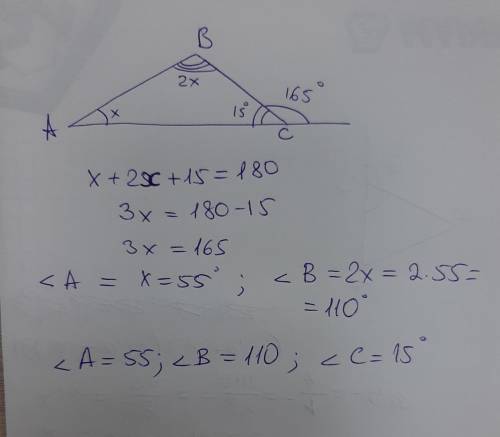 B
2x
A
x
15°
165°
C
x + 2x + 15 = 180
3x = 180 - 15
3x = 165
∠A = x = 55° ; ∠B = 2x = 2·55 =
= 110°
∠A = 55; ∠B = 110 ; ∠C = 15°